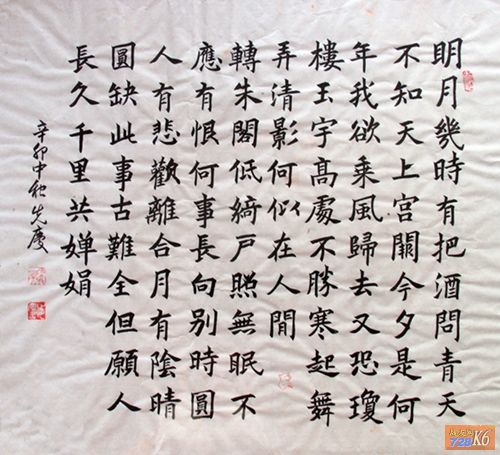 明月幾時有把酒問青天
不知天上宮闕今夕是何
年我欲乘風歸去又恐瓊
樓玉宇高處不勝寒起舞
弄清影何似在人間
轉朱閣低綺戶照無眠不
應有恨何事長向別時圓
人有悲歡離合月有陰晴
圓缺此事古難全但願人
長久千里共嬋娟
辛卯中秋先慶
728K6